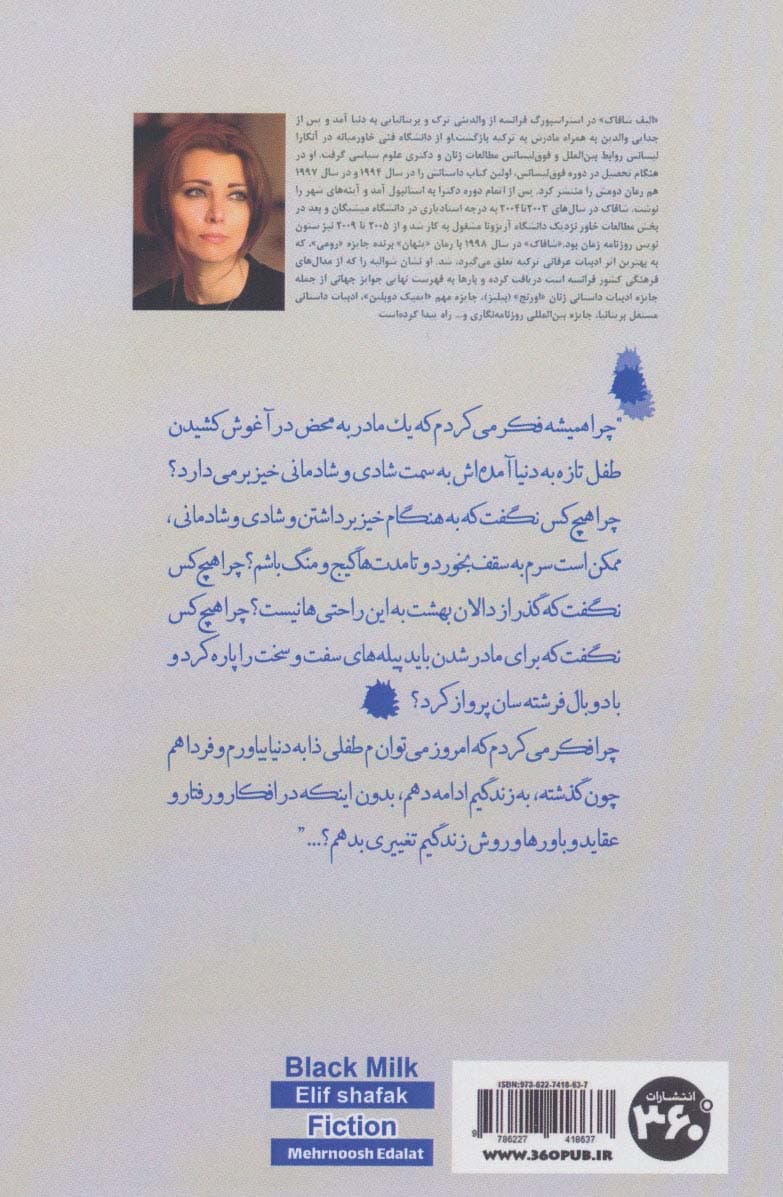 «الیف شافاک» در استراسبورگ فرانسه از والدینی ترک و بریتانیایی به دنیا آمد و پس از
جدایی والدین به همراه مادرش به ترکیه بازگشت.او از دانشگاه فنی خاورمیانه در آنکارا
لیسانس روابط بین‌الملل و فوق‌لیسانس مطالعات زنان و دکتری علوم سیاسی گرفت. او در
هنگام تحصیل در دوره فوق‌لیسانس، اولین کتاب داستانش را در سال ۱۹۹۴ و در سال ۱۹۹۷
هم رمان دومش را منتشر کرد. پس از اتمام دوره دکترا به استانبول آمد و آینه‌های شهر را
نوشت. شافاک در سال‌های ۲۰۰۳تا۲۰۰۴ به درجه استادیاری در دانشگاه میشیگان و بعد در
بخش مطالعات خاور نزدیک دانشگاه آریزونا مشغول به کار شد و از ۲۰۰۵ تا ۲۰۰۹ نیز ستون
نویس روزنامه زمان بود.«شافاک» در سال ۱۹۹۸ با رمان «پنهان» برنده جایزه «رومی»، که
به بهترین اثر ادبیات عرفانی ترکیه تعلق می‌گیرد، شد. او نشان شوالیه را که از مدال‌های
فرهنگی کشور فرانسه است دریافت کرده و بارها به فهرست نهایی جوایز جهانی از جمله
جایزه ادبیات داستانی زنان «اورنج» (بیلیز)، جایزه مهم «ایمپک دوبلین»، ادبیات داستانی
مستقل بریتانیا، جایزه بین‌المللی روزنامه‌نگاری و... راه پیدا کرده‌است
"چرا همیشه فکر می کردم که یك مادر به محض در آغوش کشیدن
طفل تازه به دنیا آمده‌اش به سمت شادی و شادمانی خیز برمی دارد؟
چرا هیچ کس نگفت که به هنگام خیز برداشتن و شادی و شادمانی،
ممکن است سرم به سقف بخورد و تا مدت ها گیج و منگ باشم؟ چرا هیچ کس
نگفت که گذر از دالان بهشت به این راحتی ها نیست؟ چرا هیچ کس
نگفت که برای مادر شدن باید پیله های سفت و سخت را پاره کرد و
با دو بال فرشته سان پرواز کرد؟
چرا فکر می کردم که امروز می توانم طفلی ذا به دنیا بیاورم و فردا هم
چون گذشته، به زندگیم ادامه دهم، بدون اینکه در افکار و رفتار و
عقاید و باورها و روش زندگیم تغییری بدهم؟..."
Black Milk
Elif shafak
Fiction
Mehrnoosh Edalat
ISBN:973-622-7418-63-7
9 786227 418637
WWW.360PUB.IR
انتشارات
۳۶۰°